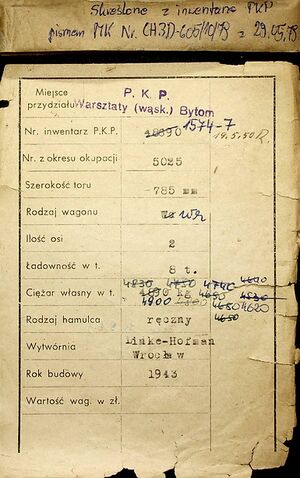 Skreślone z inwentarza PKP
pismem MK Nr. CH3D-605/10/78 z 29.05.78
Miejsce przydziału P. K. P.
Warsztaty (wąsk.) Bytom
Nr. inwentarz P.K.P. 18990 1574-7 19.5.50
Nr. z okresu okupacji 5025
Szerokość toru 785 mm
Rodzaj wagonu Wh
Ilość osi 2
Ładowność w t. 8 t.
4830 4740
Ciężar własny w t. 4890 kg 4650 4830
4900 4680 4620
Rodzaj hamulca ręczny 4650
Wytwórnia Linke-Hofman
Wrocław
Rok budowy 1943
Wartość wag. w zł.